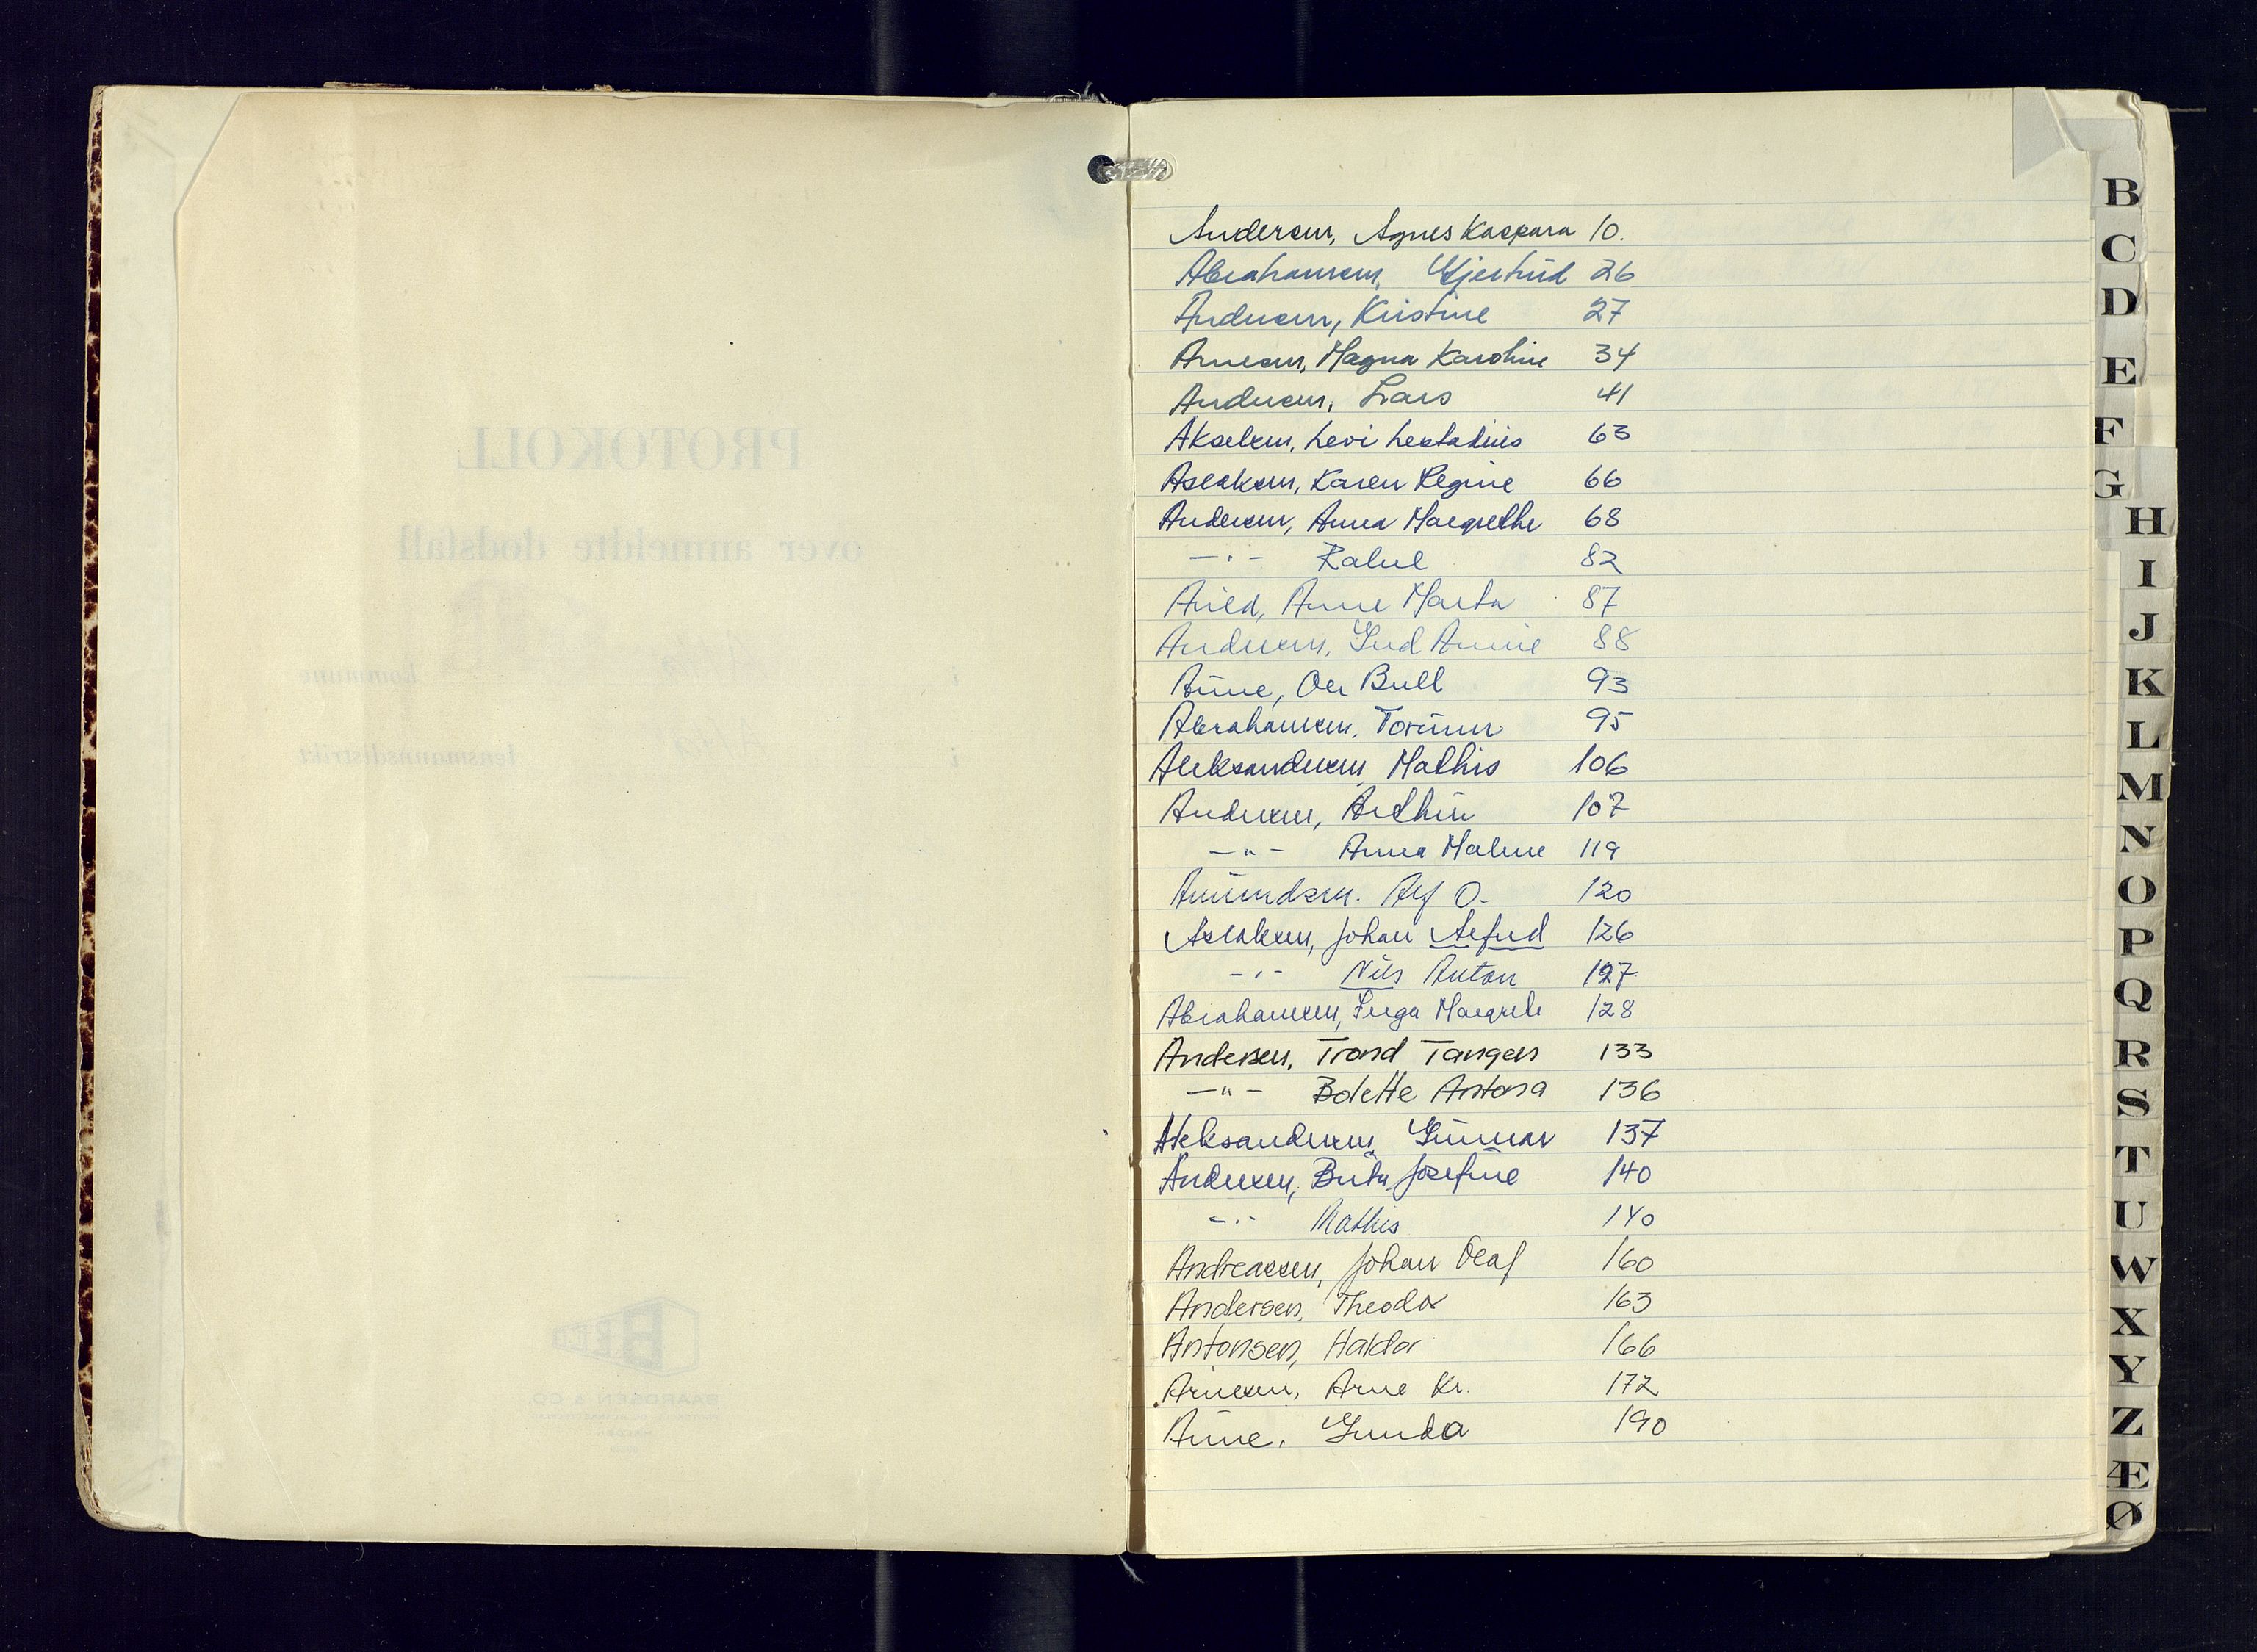 PROTOKOLL
over anmeldte dødsfall
i Alta kommune
i Alta lensmannsdistrikt
BAARDSEN & CO
Andersen, Agnes Kaspara 10.
Abrahamsen, Gjertrud 26
Andersen, Kristine 27
Arnesen, Magna Karoline 34
Andersen, Lars 41
Akselsen, Levi Lestadius 63
Aslaksen, Karen Regine 66
Andersen, Anna Margrethe 68
—"— Rakel 82
Arild, Anne Marta 87
Andersen, Gud Annie 88
Aune, Ole Bull 93
Abrahamsen, Torunn 95
Aleksandersen, Mathis 106
Andersen, Arthur 107
—"— Anna Malene 119
Amundsen. Alf O. 120
Aslaksen, Johan Alfred 126
—"— Nils Anton 127
Abrahamsen, Inga Margrete 128
Andersen, Trond Tangen 133
—"— Bolette Antona 136
Aleksandersen, Gunnar 137
Andersen, Brita Josefine 140
—"— Mathis 140
Andreassen, Johan Olaf 160
Andersen, Theodor 163
Antonsen, Haldor 166
Arnesen, Arne Kr. 172
Aune, Gunda 190
B
C
D
E
F
G
H
I
J
K
L
M
N
O
P
Q
R
S
T
U
W
X
Y
Z
Æ
Ø